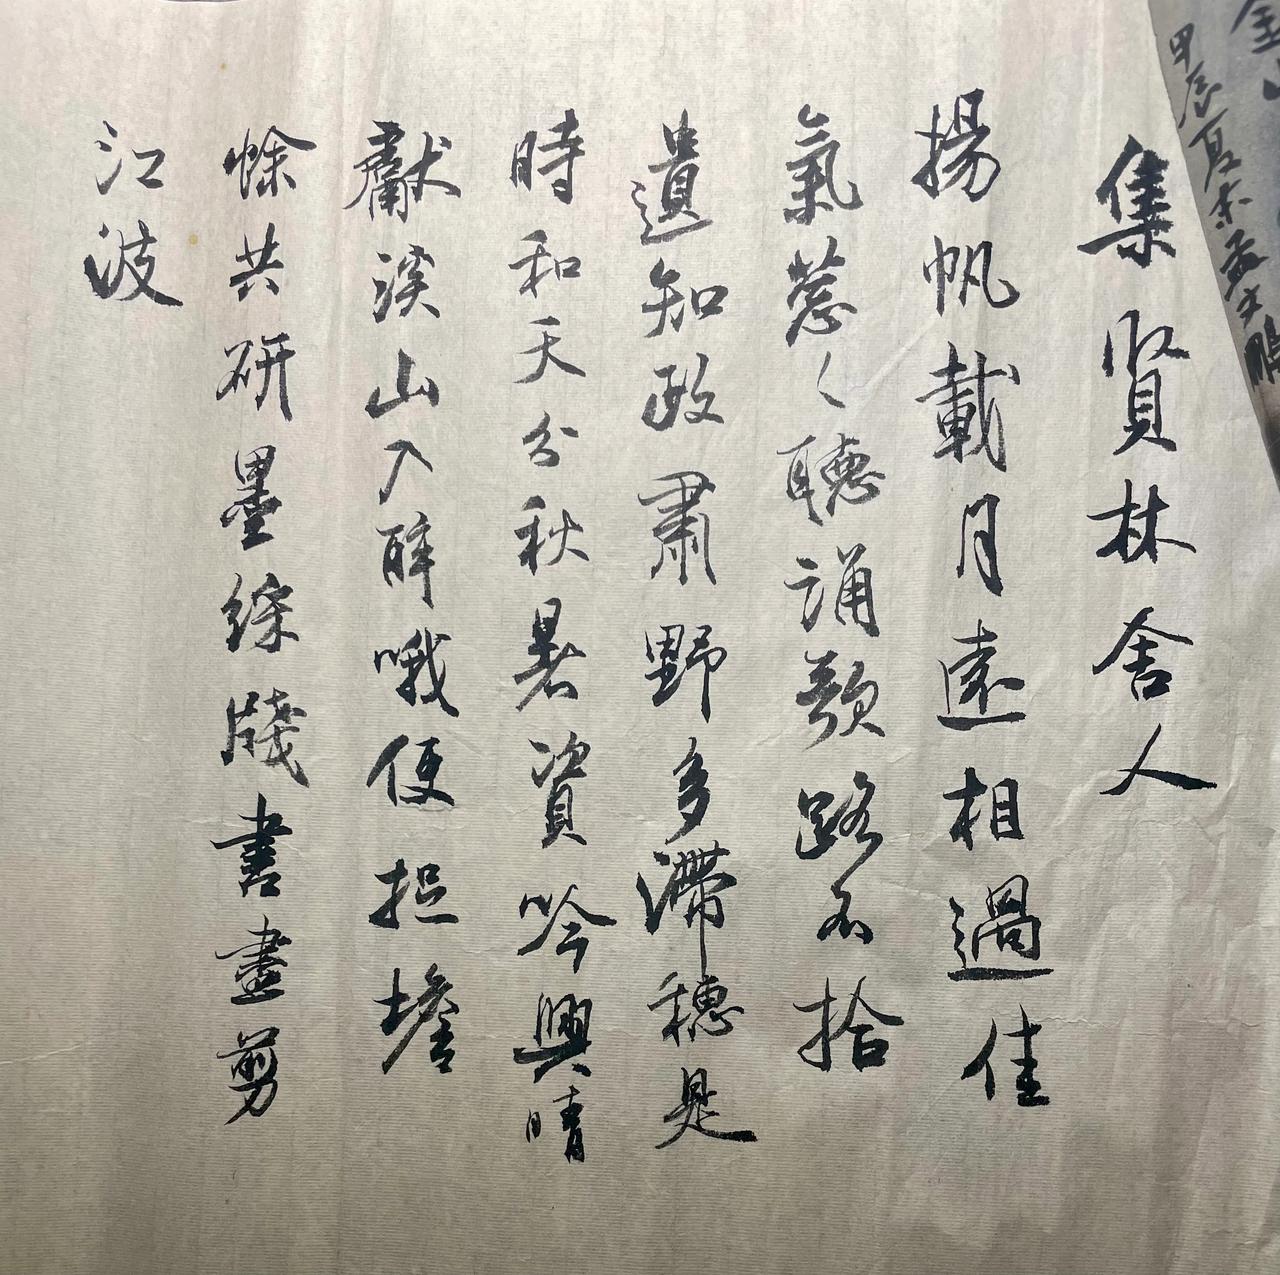 甲辰夏末
集賢林舍人
揚帆載月遠相過佳
氣葱々聽誦歌路不拾
遺知政肅野多滯穗是
時和天分秋暑資吟興晴
獻溪山入醉哦便捉蟾
蜍共研墨綵牋書盡剪
江波